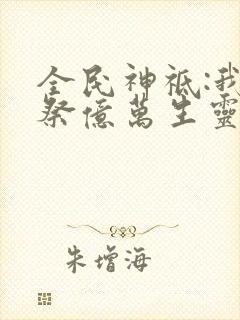 全民神祇:我
祭億萬生靈
朱增海